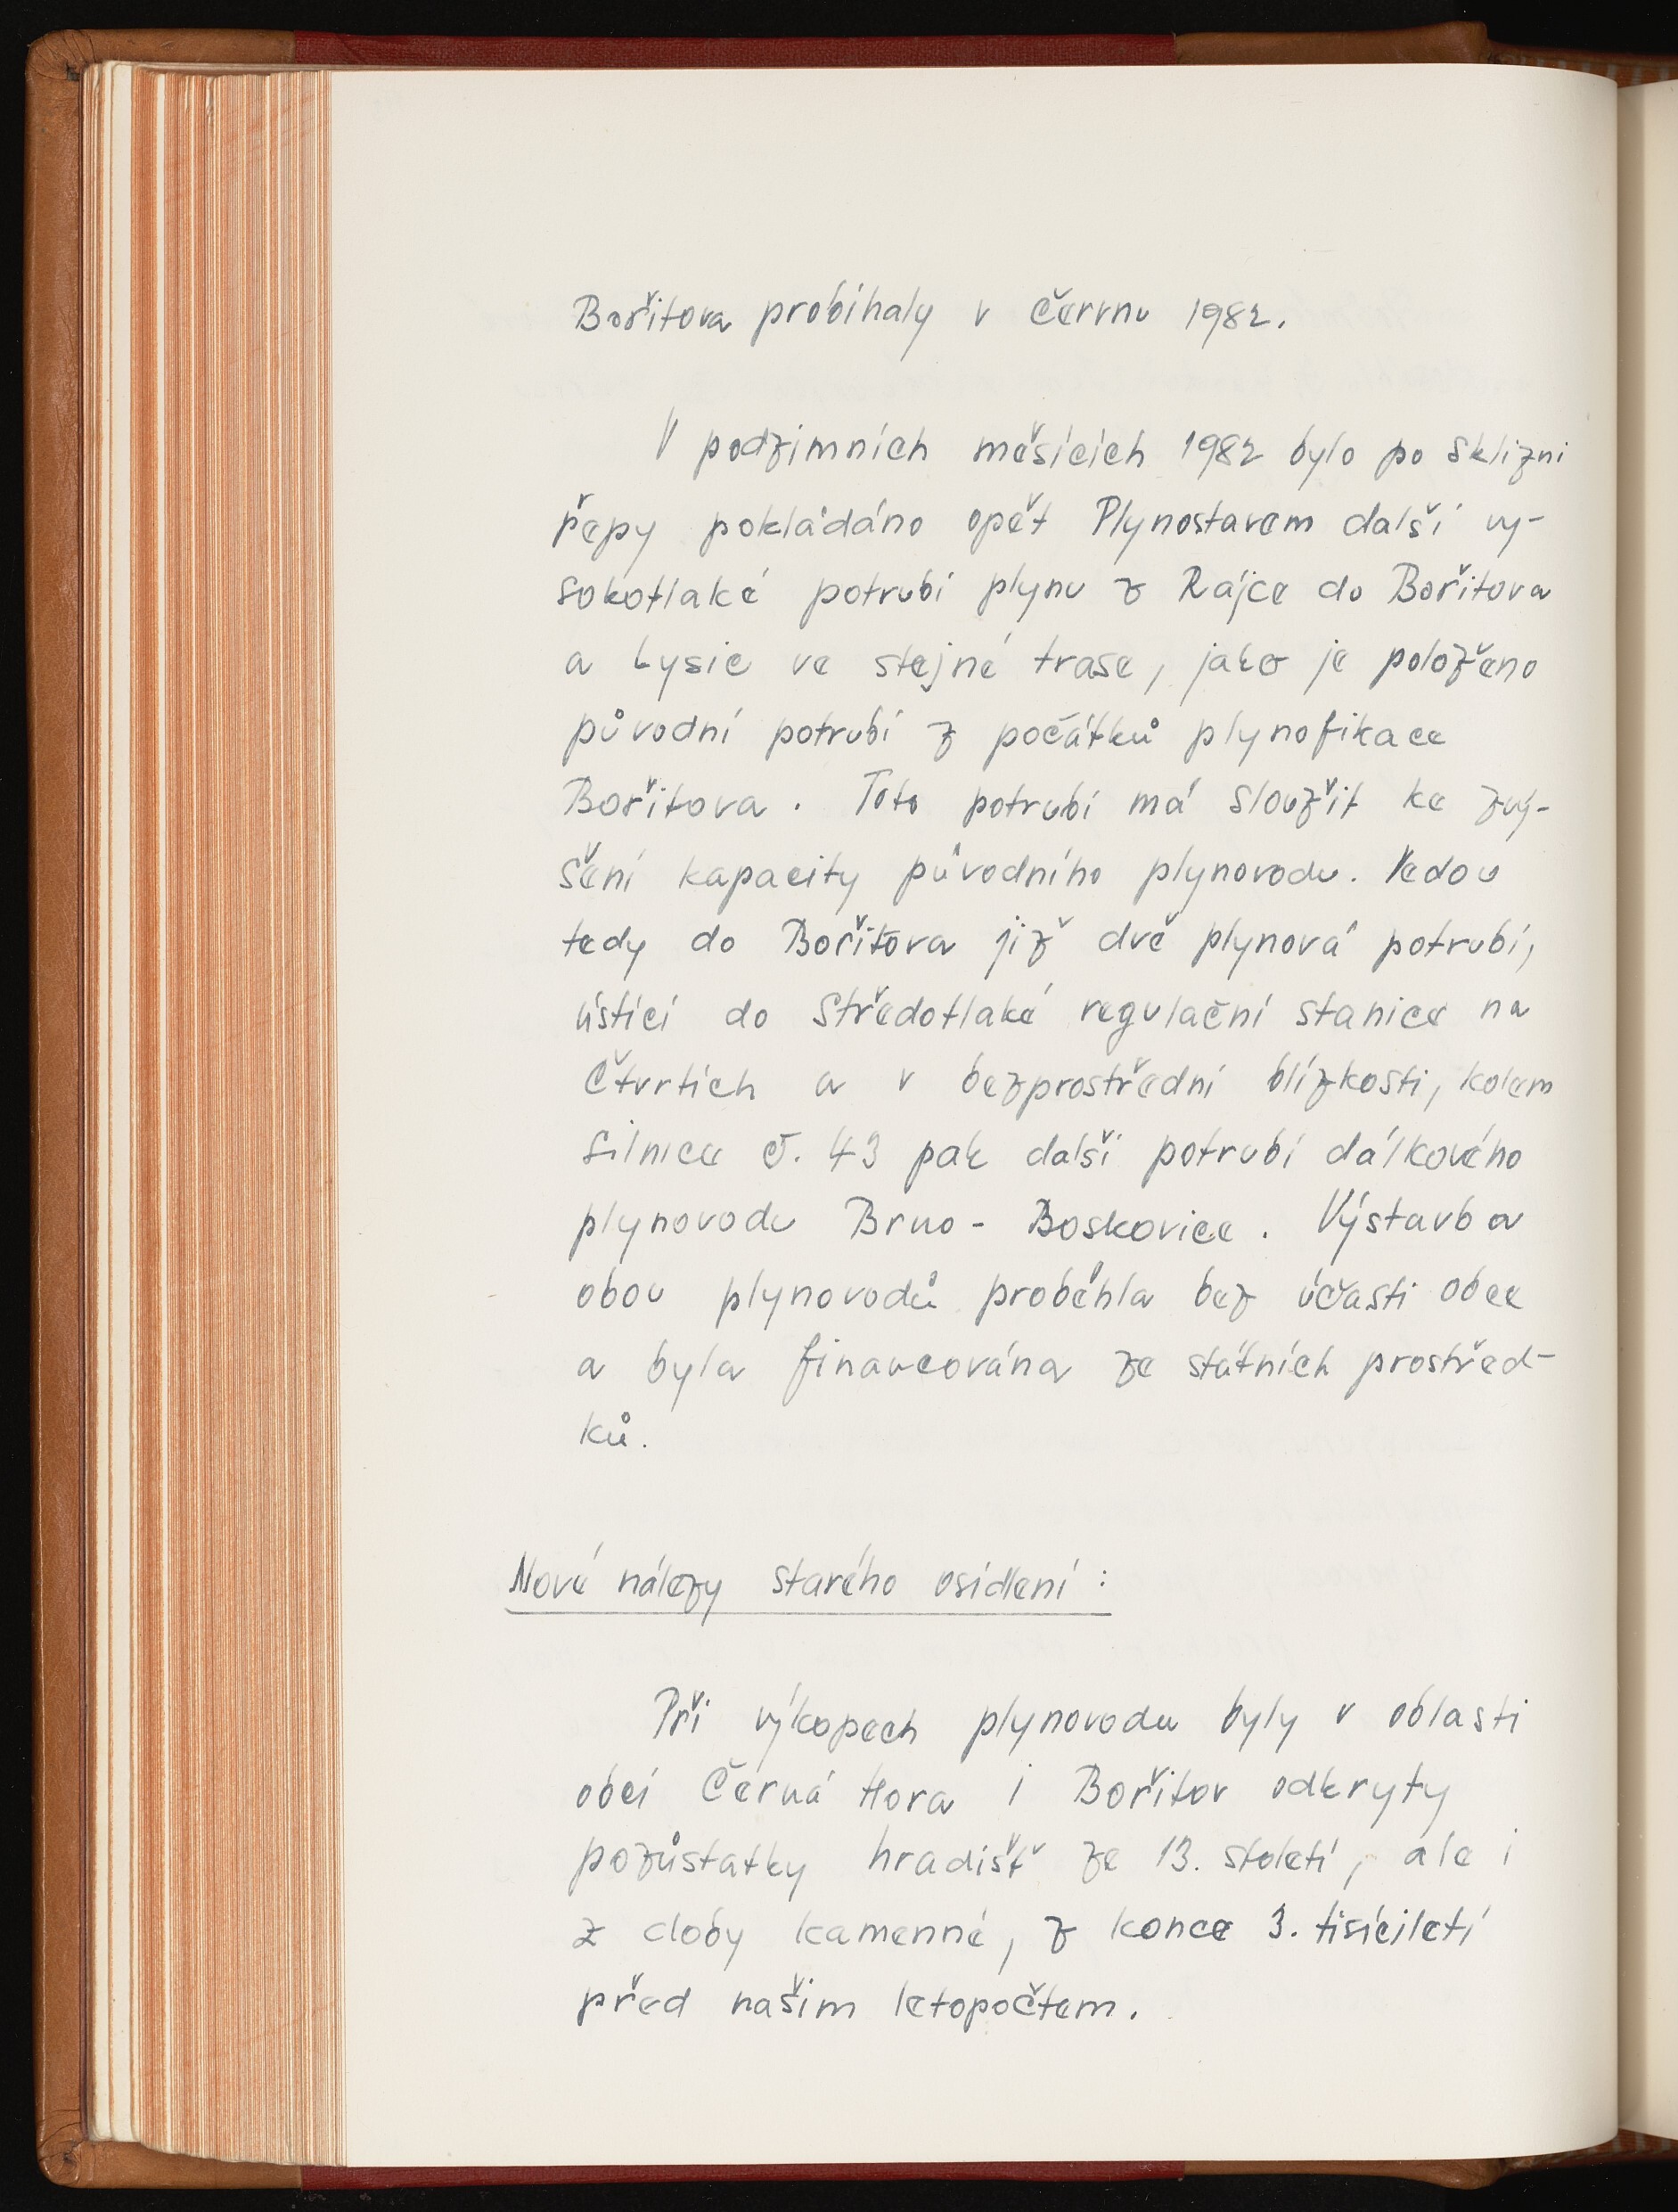 Bořitova probíhaly v červnu 1982.
V podzimních měsících 1982 bylo po sklizni
řepy pokládáno opět Plynostavem další vy-
sokotlaké potrubí plynu z Rájce do Bořitova
a Lysic ve stejné trase, jako je položeno
původní potrubí z počátků plynofikace
Bořitova. Toto potrubí má sloužit ke zvý-
šení kapacity původního plynovodu. Vedou
tedy do Bořitova již dvě plynová potrubí,
ústící do středotlaké regulační stanice na
Čtvrtích a v bezprostřední blízkosti, kolem
silnice č. 43 pak další potrubí dálkového
plynovodu Brno - Boskovice. Výstavba
obou plynovodů proběhla bez účasti obce
a byla financována ze státních prostřed-
ků.
Nové nálezy starého osídlení :
Při výkopech plynovodu byly v oblasti
obcí Černá Hora i Bořitov odkryty
pozůstatky hradišť ze 13. století, ale i
z doby kamenné, z konce 3. tisíciletí
před naším letopočtem.